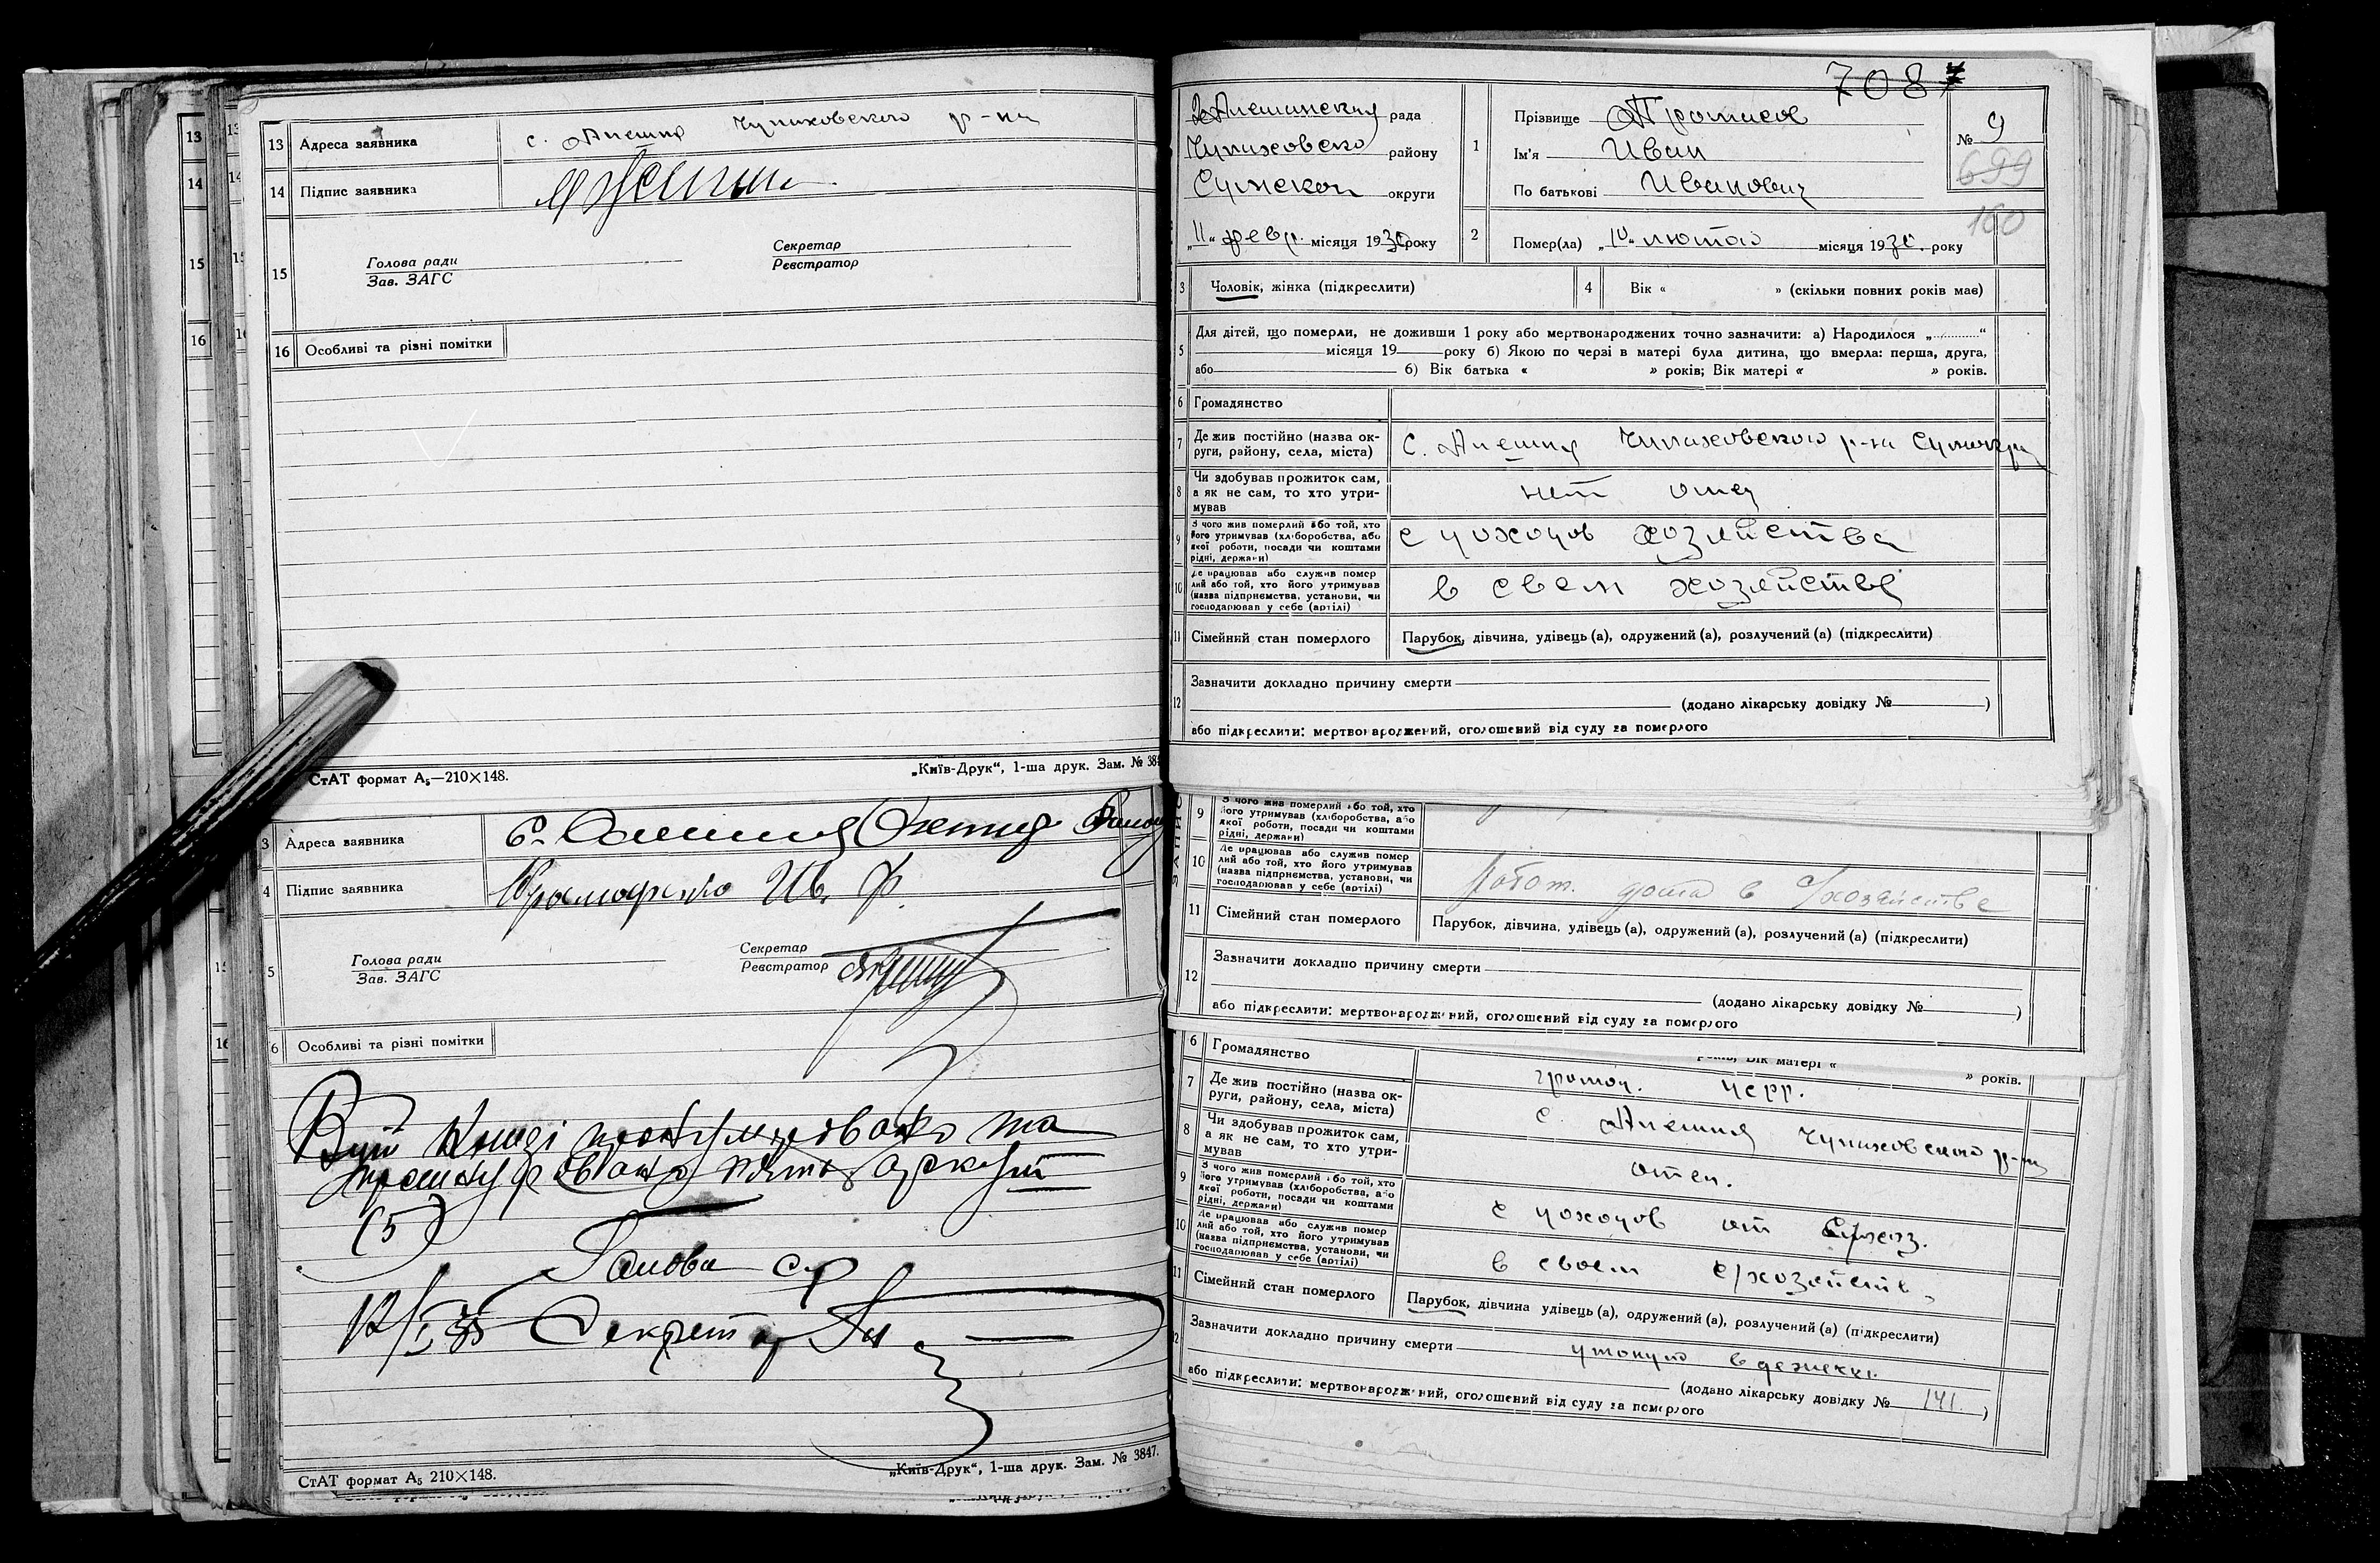 13 Адреса заявника с. Алешня Чупаховского р-на
14 Підпис заявника
15 Голова ради
Зав. ЗАГС
Секретар
Реєстратор
16 Особливі та різні помітки
СтАТ формат А₅—210×148.
„Київ-Друк“, 1-ша друк. Зам. № 384
3 Адреса заявника С.
4 Підпис заявника Ив. Ф.
5 Голова ради
Зав. ЗАГС
Секретар
Реєстратор
6 Особливі та різні помітки
та
аркуш
(5)
Голова с/р
Секретар
СтАТ формат А₅ 210×148.
„Київ-Друк“, 1-ша друк. Зам. № 3847.
708
Алешинская рада
Чупаховско району
Сумской округи
„11“ февр. місяця 1930 року
1 Прізвище
Ім'я Иван
По батькові Иванович
№ 9
699
160
2 Помер(ла) „10“ лютого місяця 1930 року
3 Чоловік, жінка (підкреслити)
4 Вік « » (скільки повних років має)
5 Для дітей, що померли, не доживши 1 року або мертвонароджених точно зазначити: а) Народилося „ “
місяця 19 року б) Якою по черзі в матері була дитина, що вмерла: перша, друга,
або б) Вік батька « » років; Вік матері « » років.
6 Громадянство
7 Де жив постійно (назва ок-
руги, району, села, міста) С. Алешня Чупаховского р-на
8 Чи здобував прожиток сам,
а як не сам, то хто утри-
мував нет отец
9 З чого жив померлий або той, хто
його утримував (хліборобства, або
якої роботи, посади чи коштами
рідні, держави) с доходов хозяйства
10 Де працював або служив помер
лий або той, хто його утримував
(назва підприємства, установи, чи
господарював у себе (артілі) в своем хозяйстве
11 Сімейний стан померлого Парубок, дівчина, удівець (а), одружений (а), розлучений (а) (підкреслити)
12 Зазначити докладно причину смерти
(додано лікарську довідку № )
або підкреслити: мертвонароджений, оголошений від суду за померлого
9 З чого жив померлий або той, хто
його утримував (хліборобства, або
якої роботи, посади чи коштами
рідні, держави)
10 Де працював або служив помер
лий або той, хто його утримував
(назва підприємства, установи, чи
господарював у себе (артілі) работ. дома в с/хозяйстве
11 Сімейний стан померлого Парубок, дівчина, удівець (а), одружений (а), розлучений (а) (підкреслити)
12 Зазначити докладно причину смерти
(додано лікарську довідку № )
або підкреслити: мертвонароджений, оголошений від суду за померлого
років; Вік матері « » років.
6 Громадянство
7 Де жив постійно (назва ок-
руги, району, села, міста) с. Алешня Чупаховского р-на
8 Чи здобував прожиток сам,
а як не сам, то хто утри-
мував отец.
9 З чого жив померлий або той, хто
його утримував (хліборобства, або
якої роботи, посади чи коштами
рідні, держави) с доходов от с/хоз.
10 Де працював або служив помер
лий або той, хто його утримував
(назва підприємства, установи, чи
господарював у себе (артілі) в своем с/хозяйств
11 Сімейний стан померлого Парубок, дівчина удівець (а), одружений (а), розлучений (а) (підкреслити)
12 Зазначити докладно причину смерти утонул в
(додано лікарську довідку № 141. )
або підкреслити: мертвонароджений, оголошений від суду за померлого